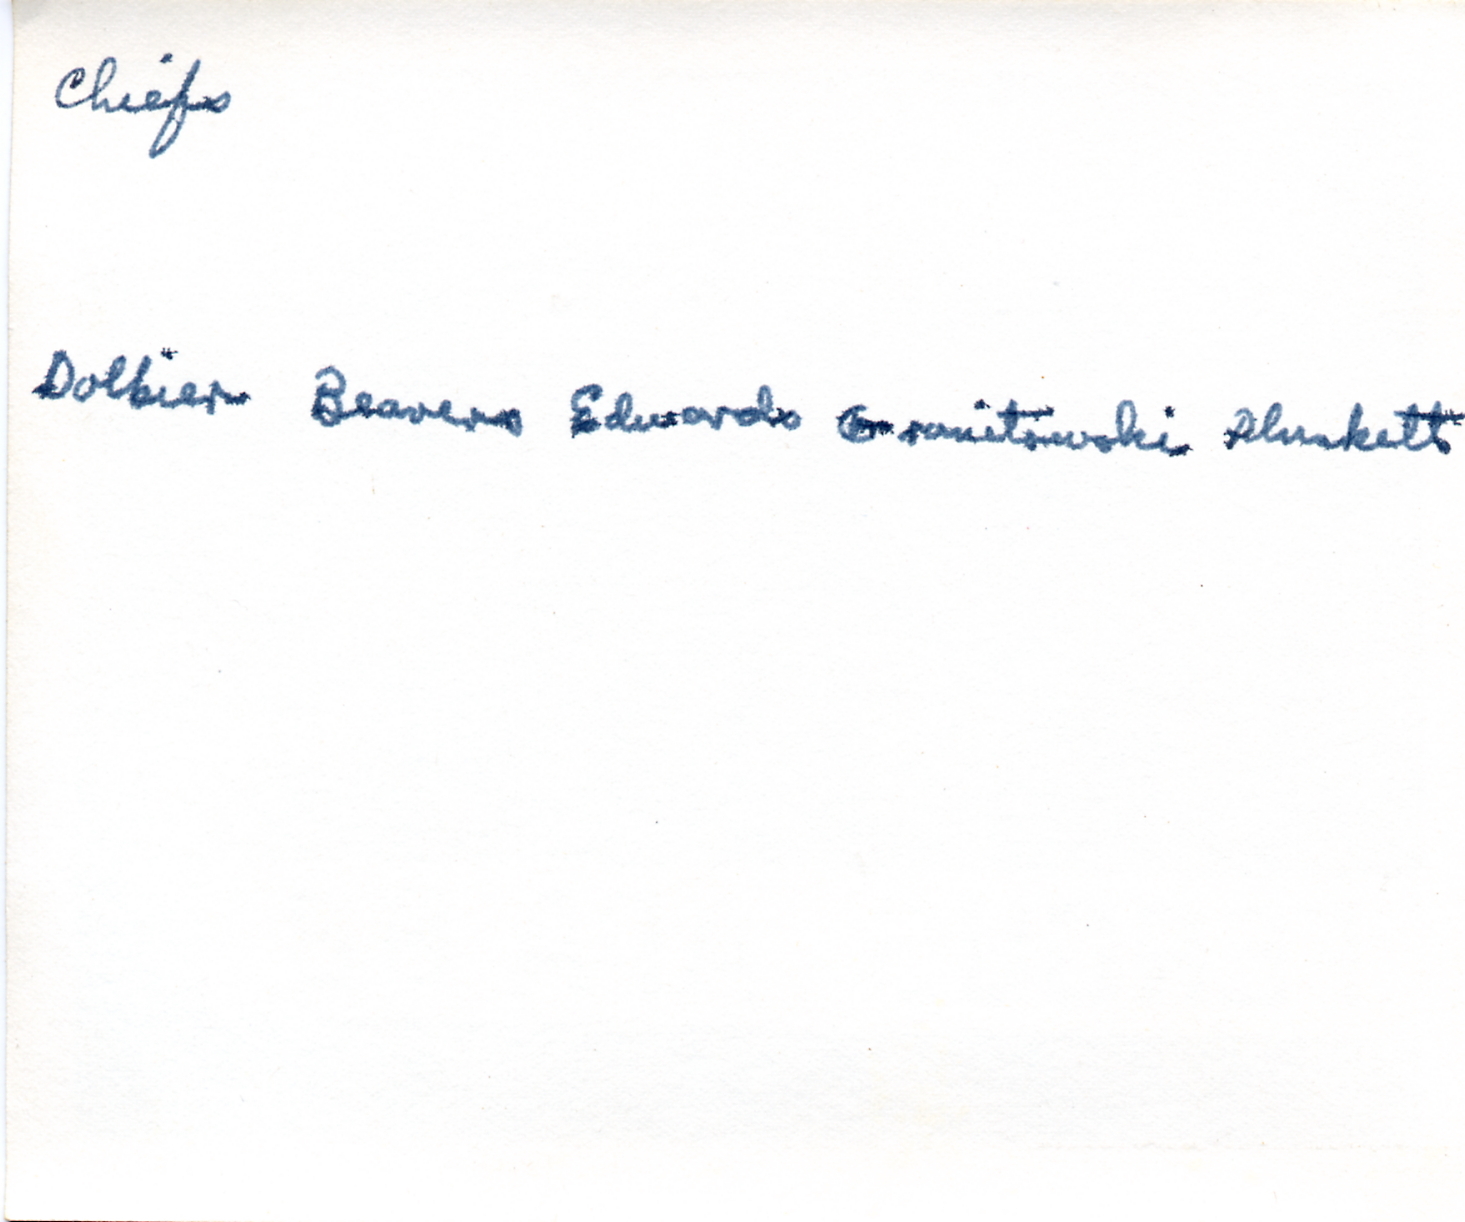 Chiefs
Dolbier Beavers Edwards Granitowski Plunkett